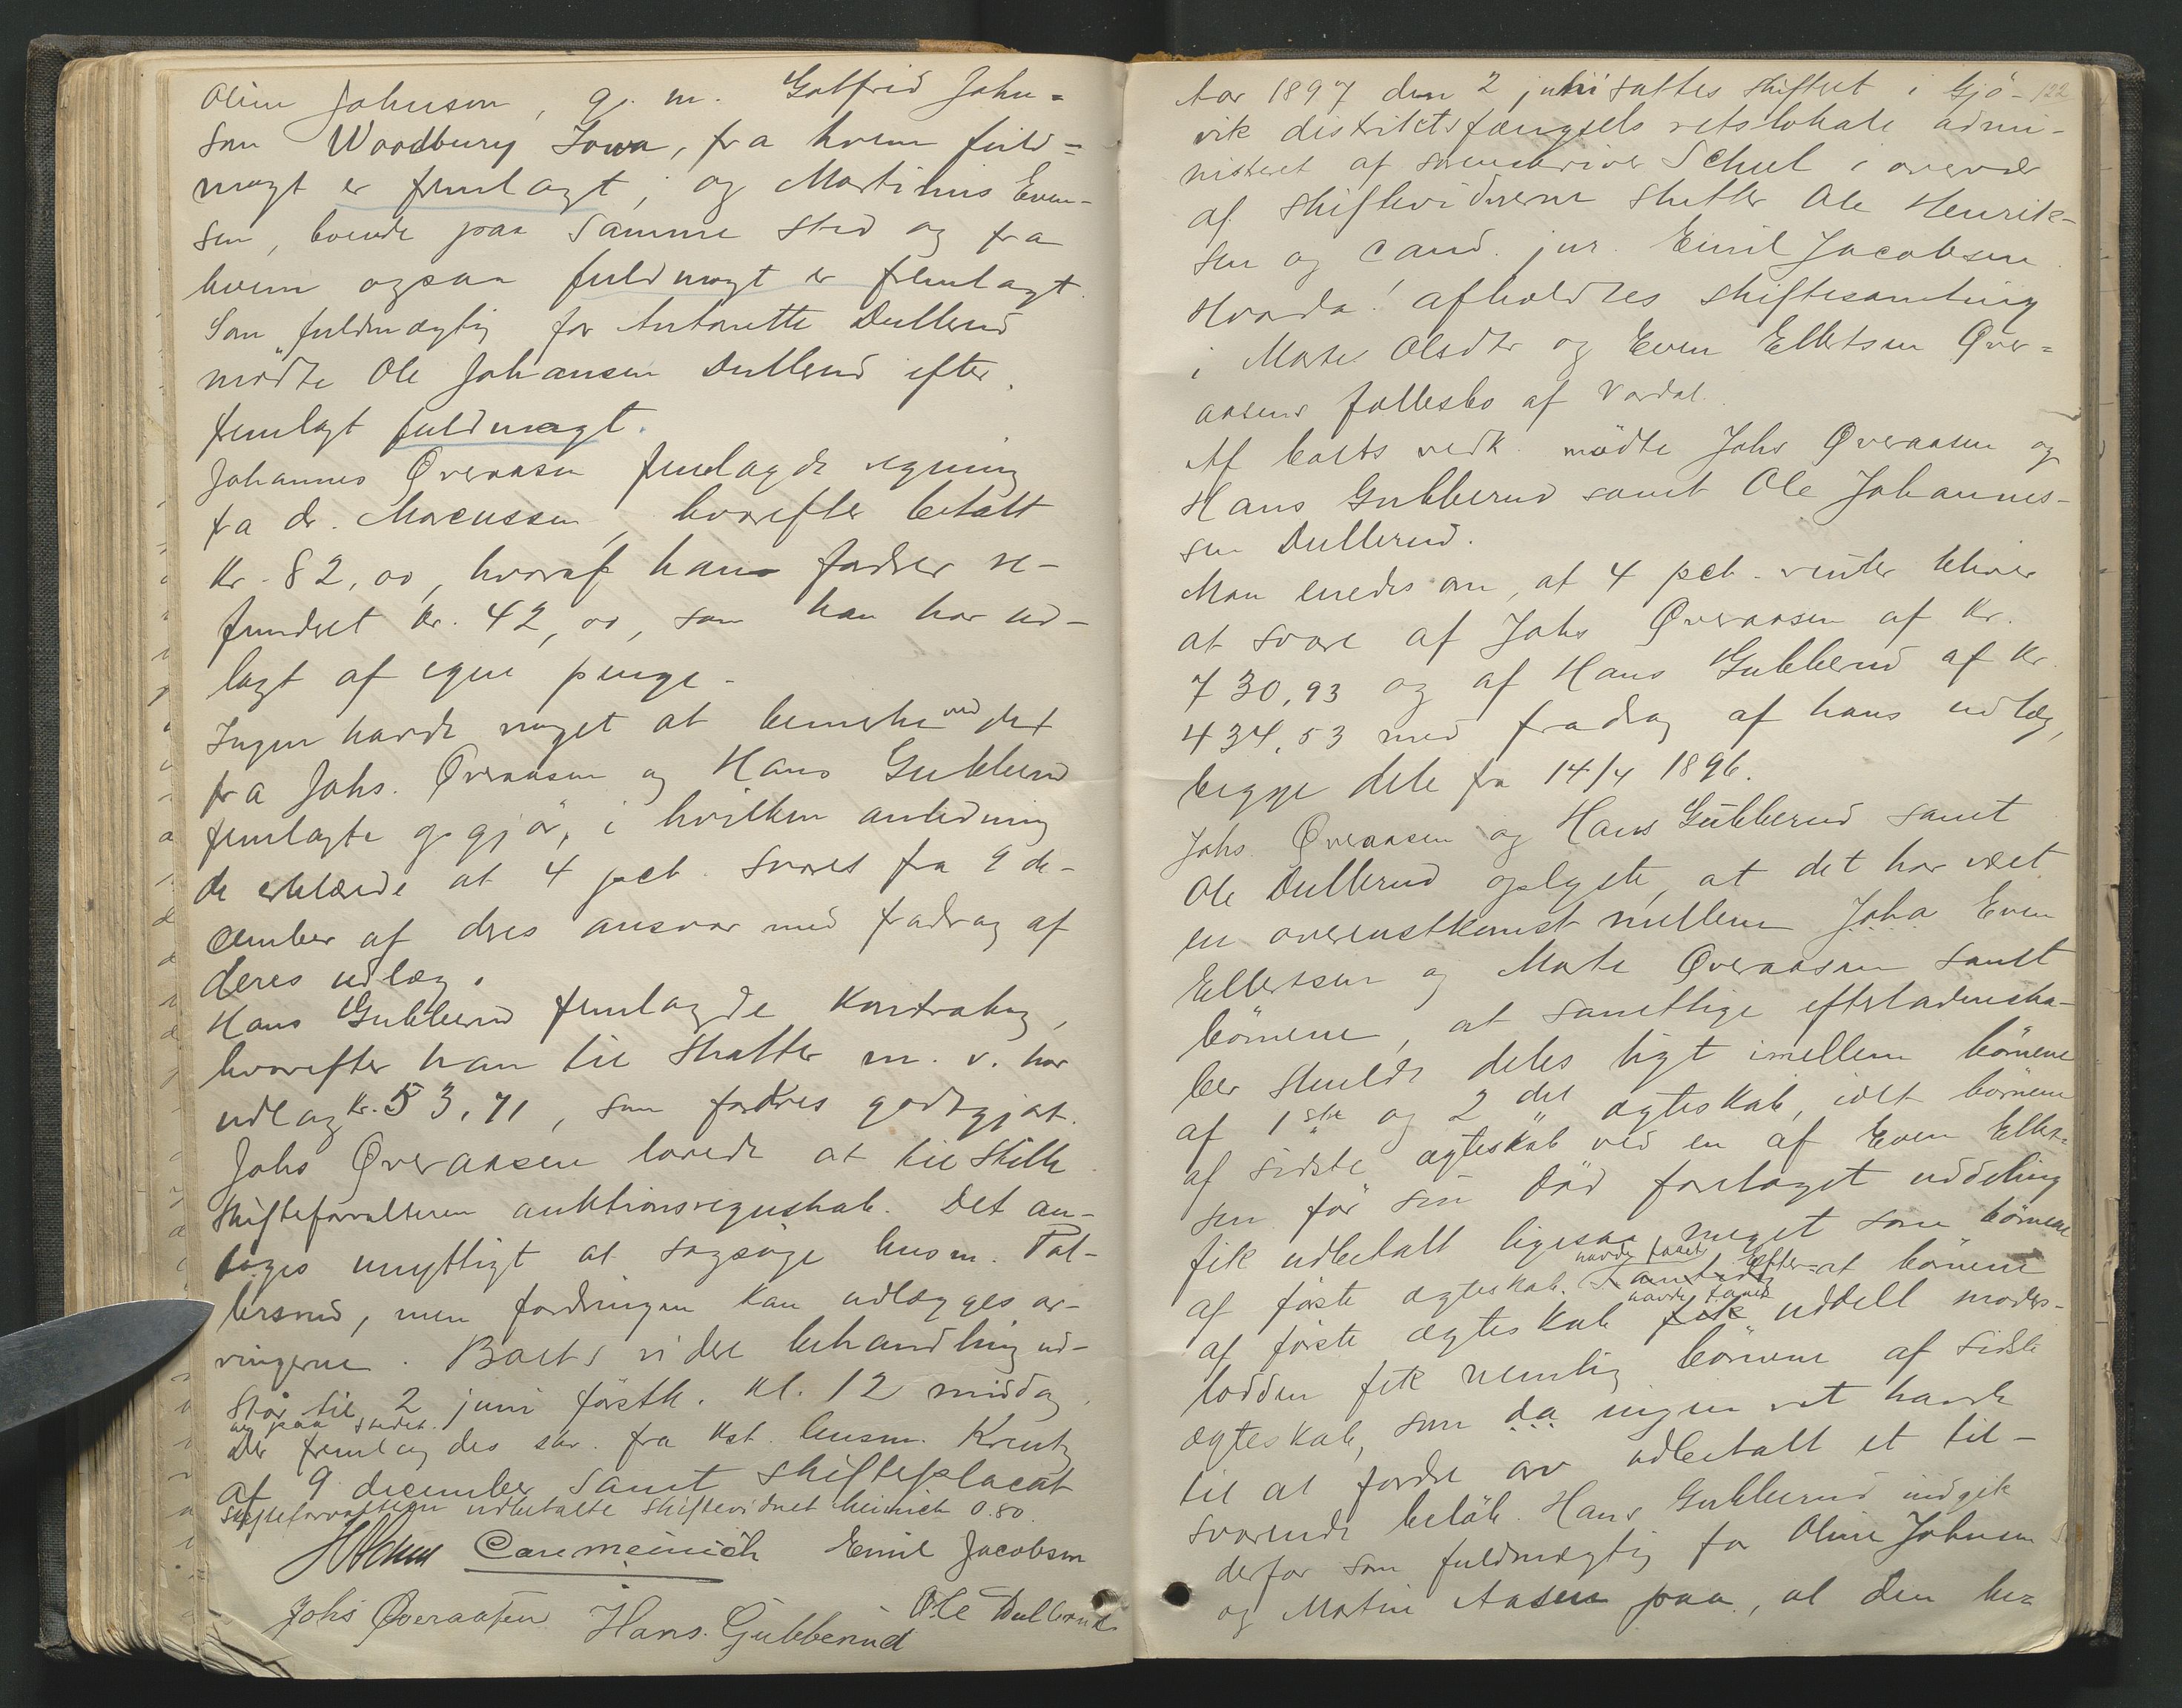 Oline Johnson, g. m. Gotfred John=
son Woodbury Iowa, fra hvem fuld=
magt er fremlagt, og Martinus Even-
sen, boende paa samme sted og fra
hvem ogsaa fuldmagt er fremlagt.
Som fuldmægtig for Antonette Dullerud
mødte Ole Johansen Dullerud efter
fremlagt fuldmagt.
Johannes Øveraasen fremlagde regning
fra dr. Marcussen, hvorefter betalt
kr. 82,00, hvoraf han fordrer re-
funderet kr. 42,00, som han har ud-
lagt af egne penge.
Ingen havde noget at bemerke ved det
fra Johs. Øveraasen og Hans Gubberud
fremlagte opgjör, i hvilken anledning
de erklærede at 4 pct. svares fra 9 de-
cember af deres ansvar med fradrag af
deres udlæg.
Hans Gubberud fremlagde kontrabog,
hvorefter han til skatter m. v. har
udlagt kr. 53,71, som fordres godtgjort.
Johs Øveraasen lovede at tilstille
skifteforvalteren auktionsregnskab. Det an-
toges unyttigt at sagsøge husm.
lersrud, men fordringen kan udlægges ar-
vingerne. Boets videre behandling ud-
står til 2 juni förstk. kl. 12 middag
her paa stedet.
Der fremlagdes skr. fra kst. lensm. Kreutz
af 9 december samt skifteplacat
Skifteforvalteren udbetalte skiftevidnet Meinich 0.80.
HSchul Carl Meinich Emil Jacobsen
Johs Øveraasen Hans. Gubberud Ole Dullerud
122
Aar 1897 den 2 juni sattes skifteret i Gjö-
vik distriktsfængsels retslokale admi-
nistreret af sorenskriver Schul i overvær
af skiftevidnerne slutter Ole Henrik-
sen og cand. jur. Emil Jacobsen.
Hvorda! afholdtes skiftesamling
i Marte Olsdtr og Even Ellertsen Øver=
aasens fællesbo af Vardal.
Af boets vedk. mødte Johs Øveraasen og
Hans Gubberud samt Ole Johannes-
sen Dullerud.
Man enedes om, at 4 pct. renter bliver
at svare af Johs Øveraasen af kr.
730,93 og af Hans Gubberud af kr.
434,53 med fradrag af hans udlæg,
begge dele fra 14/4 1896.
Johs Øveraasen og Hans Gubberud samt
Ole Dullerud oplyste, at det har vært
en overenstkomst mellem Joha Even
Ellertsen og Marte Øveraasen samt
börnene, at samtlige efterladenska-
ber skulde deles ligt imellem börnene
af 1ste og 2det ægteskab, idet börnene
af sidste ægteskab ved en af Even Ellert-
sen för sin död foretaget uddeling
fik udbetalt ligesaa meget som börnene
af förste ægteskab havde faaet. Efter at börnene
af förste ægteskab fik havde faaet uddelt moders-
lodden fik nemlig börnene af sidste
ægteskab, som da ingen ret havde
til at fordre arv udbetalt et til-
svarende belöb. Hans Gubberud indgik
derfor som fuldmægtig for Oline Johnsen
og Martin Aasen paa, at den be=